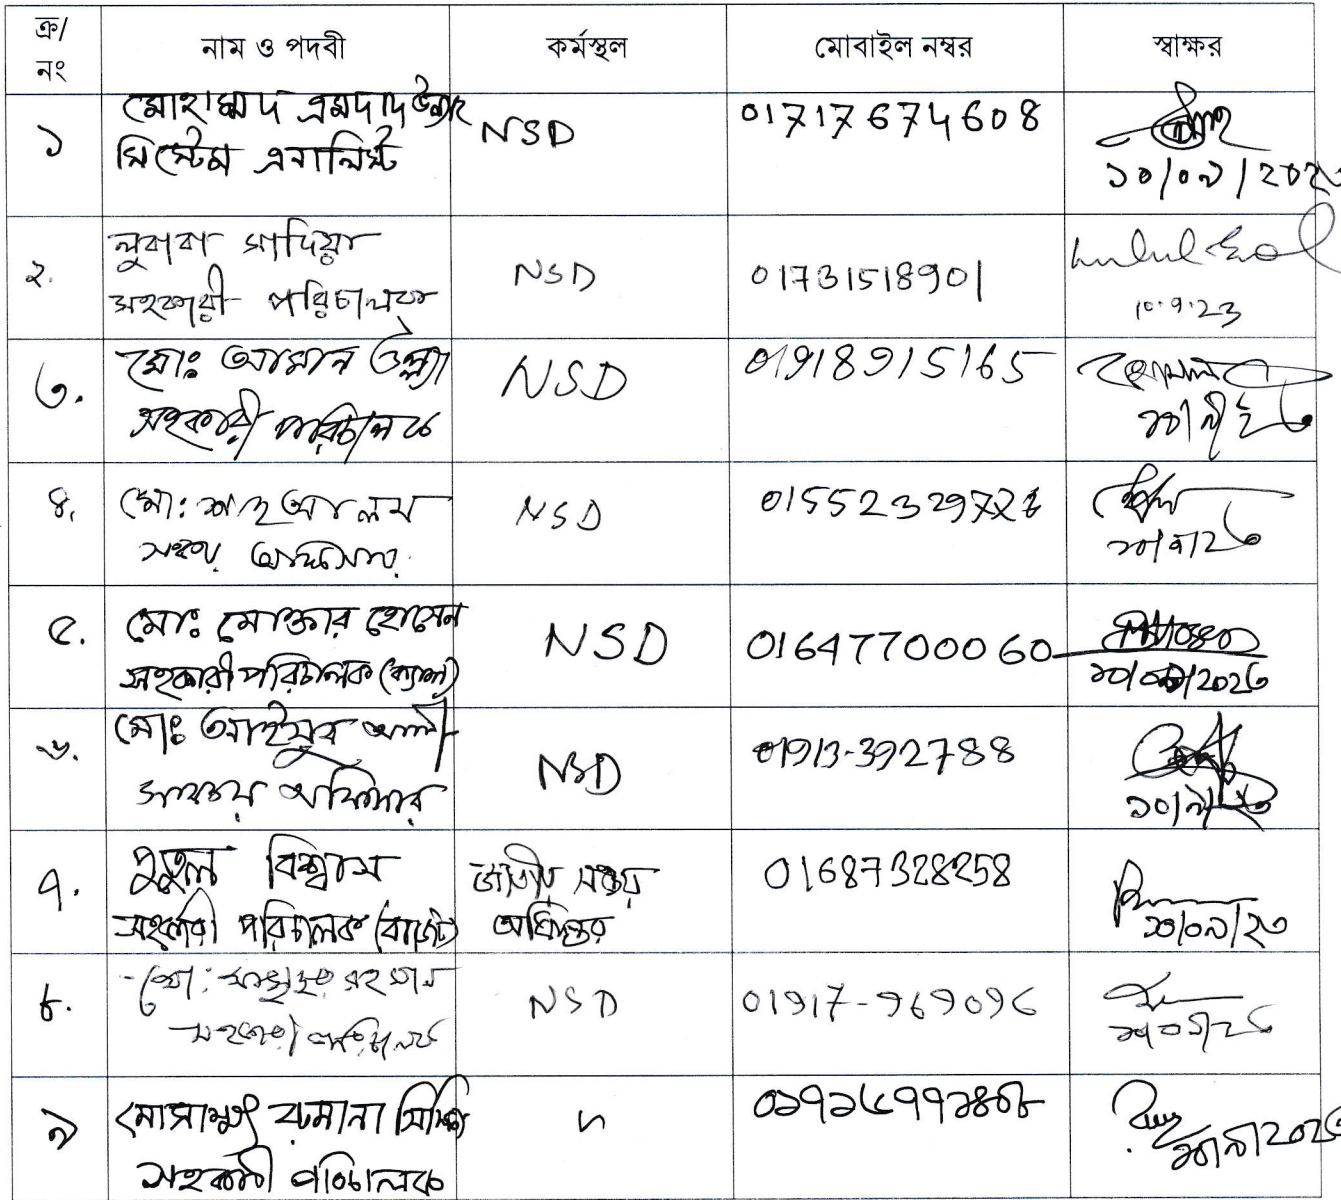 ক্র/
নং
নাম ও পদবী
কর্মস্থল
মোবাইল নম্বর
স্বাক্ষর
১
মোহাম্মদ এমদাদ উল্লাহ
সিস্টেম এনালিস্ট
NSD
01717674608
১০/০৯/২০২৩
২.
লুবাবা সাদিয়া
সহকারী পরিচালক
NSD
01731518901
10.9.23
৩.
মোঃ আমান উল্ল্যা
সহকারী পরিচালক
NSD
01918915165
১০/৯/২৩
৪.
মো: শাহ আলম
সঞ্চয় অফিসার
NSD
০১৫৫২৩২৯
১০/৯/২৩
৫.
মোঃ মোক্তার হোসেন
সহকারী পরিচালক
NSD
01647700060
১০/০৯/২০২৩
৬.
মোঃ আইয়ুব আলী
সঞ্চয় অফিসার
NSD
01913-392788
১০/৯/২৩
৭.
পুতুল বিশ্বাস
সহকারী পরিচালক (বাজেট)
জাতীয় সঞ্চয়
অধিদপ্তর
01687328258
১০/০৯/২৩
৮.
মো: রহমান
সহকারী পরিচালক
NSD
01917-969096
১০/০৯/২৩
৯
মোসাম্মৎ রুমানা
সহকারী পরিচালক
১০/৯/২০২৩